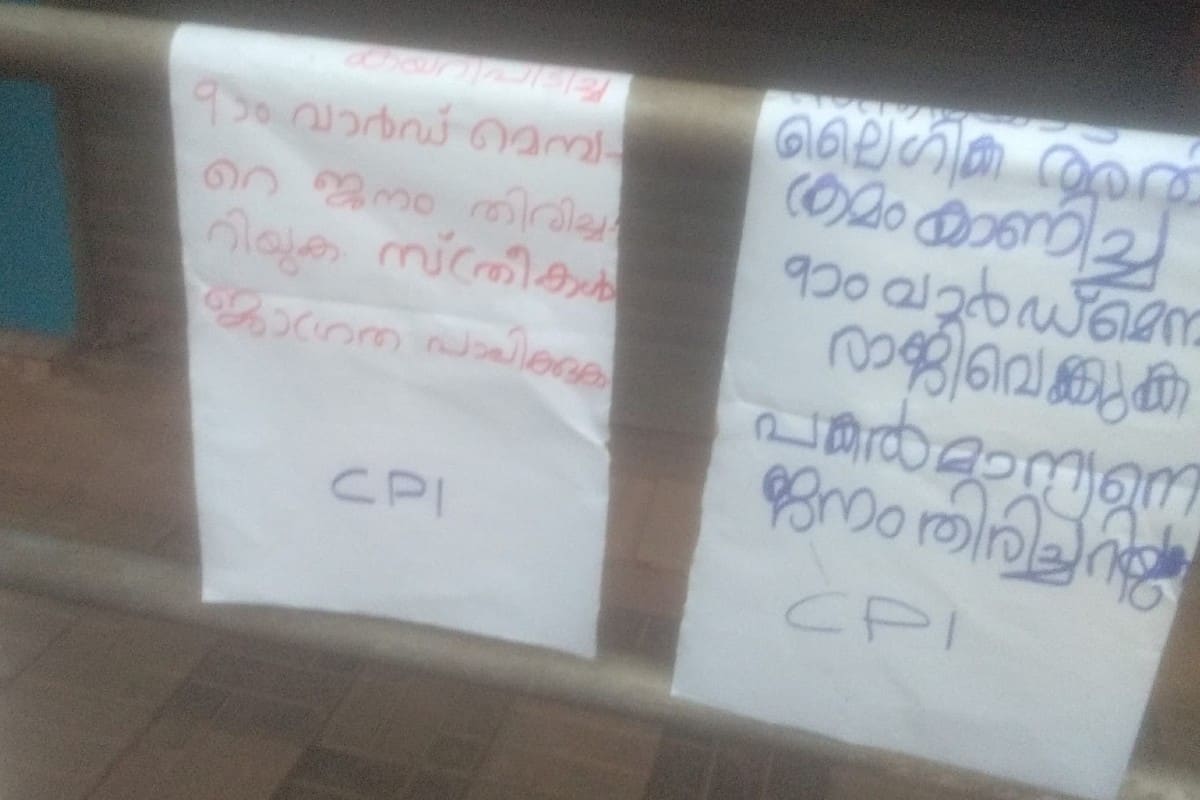 കയറിപിടിച്ച
9ാം വാർഡ് മെമ്പ-
റെ ജനം തിരിച്ച
റിയുക സ്ത്രീകൾ
ജാഗ്രത പാലിക്കുക
CPI
ലൈഗീക
ക്രമം കാണിച്ച
9ാം വാർഡ് മെമ്പ
രാജിവെക്കുക
പകൽമാന്യനെ
ജനം തിരിച്ചറിയുക
CPI